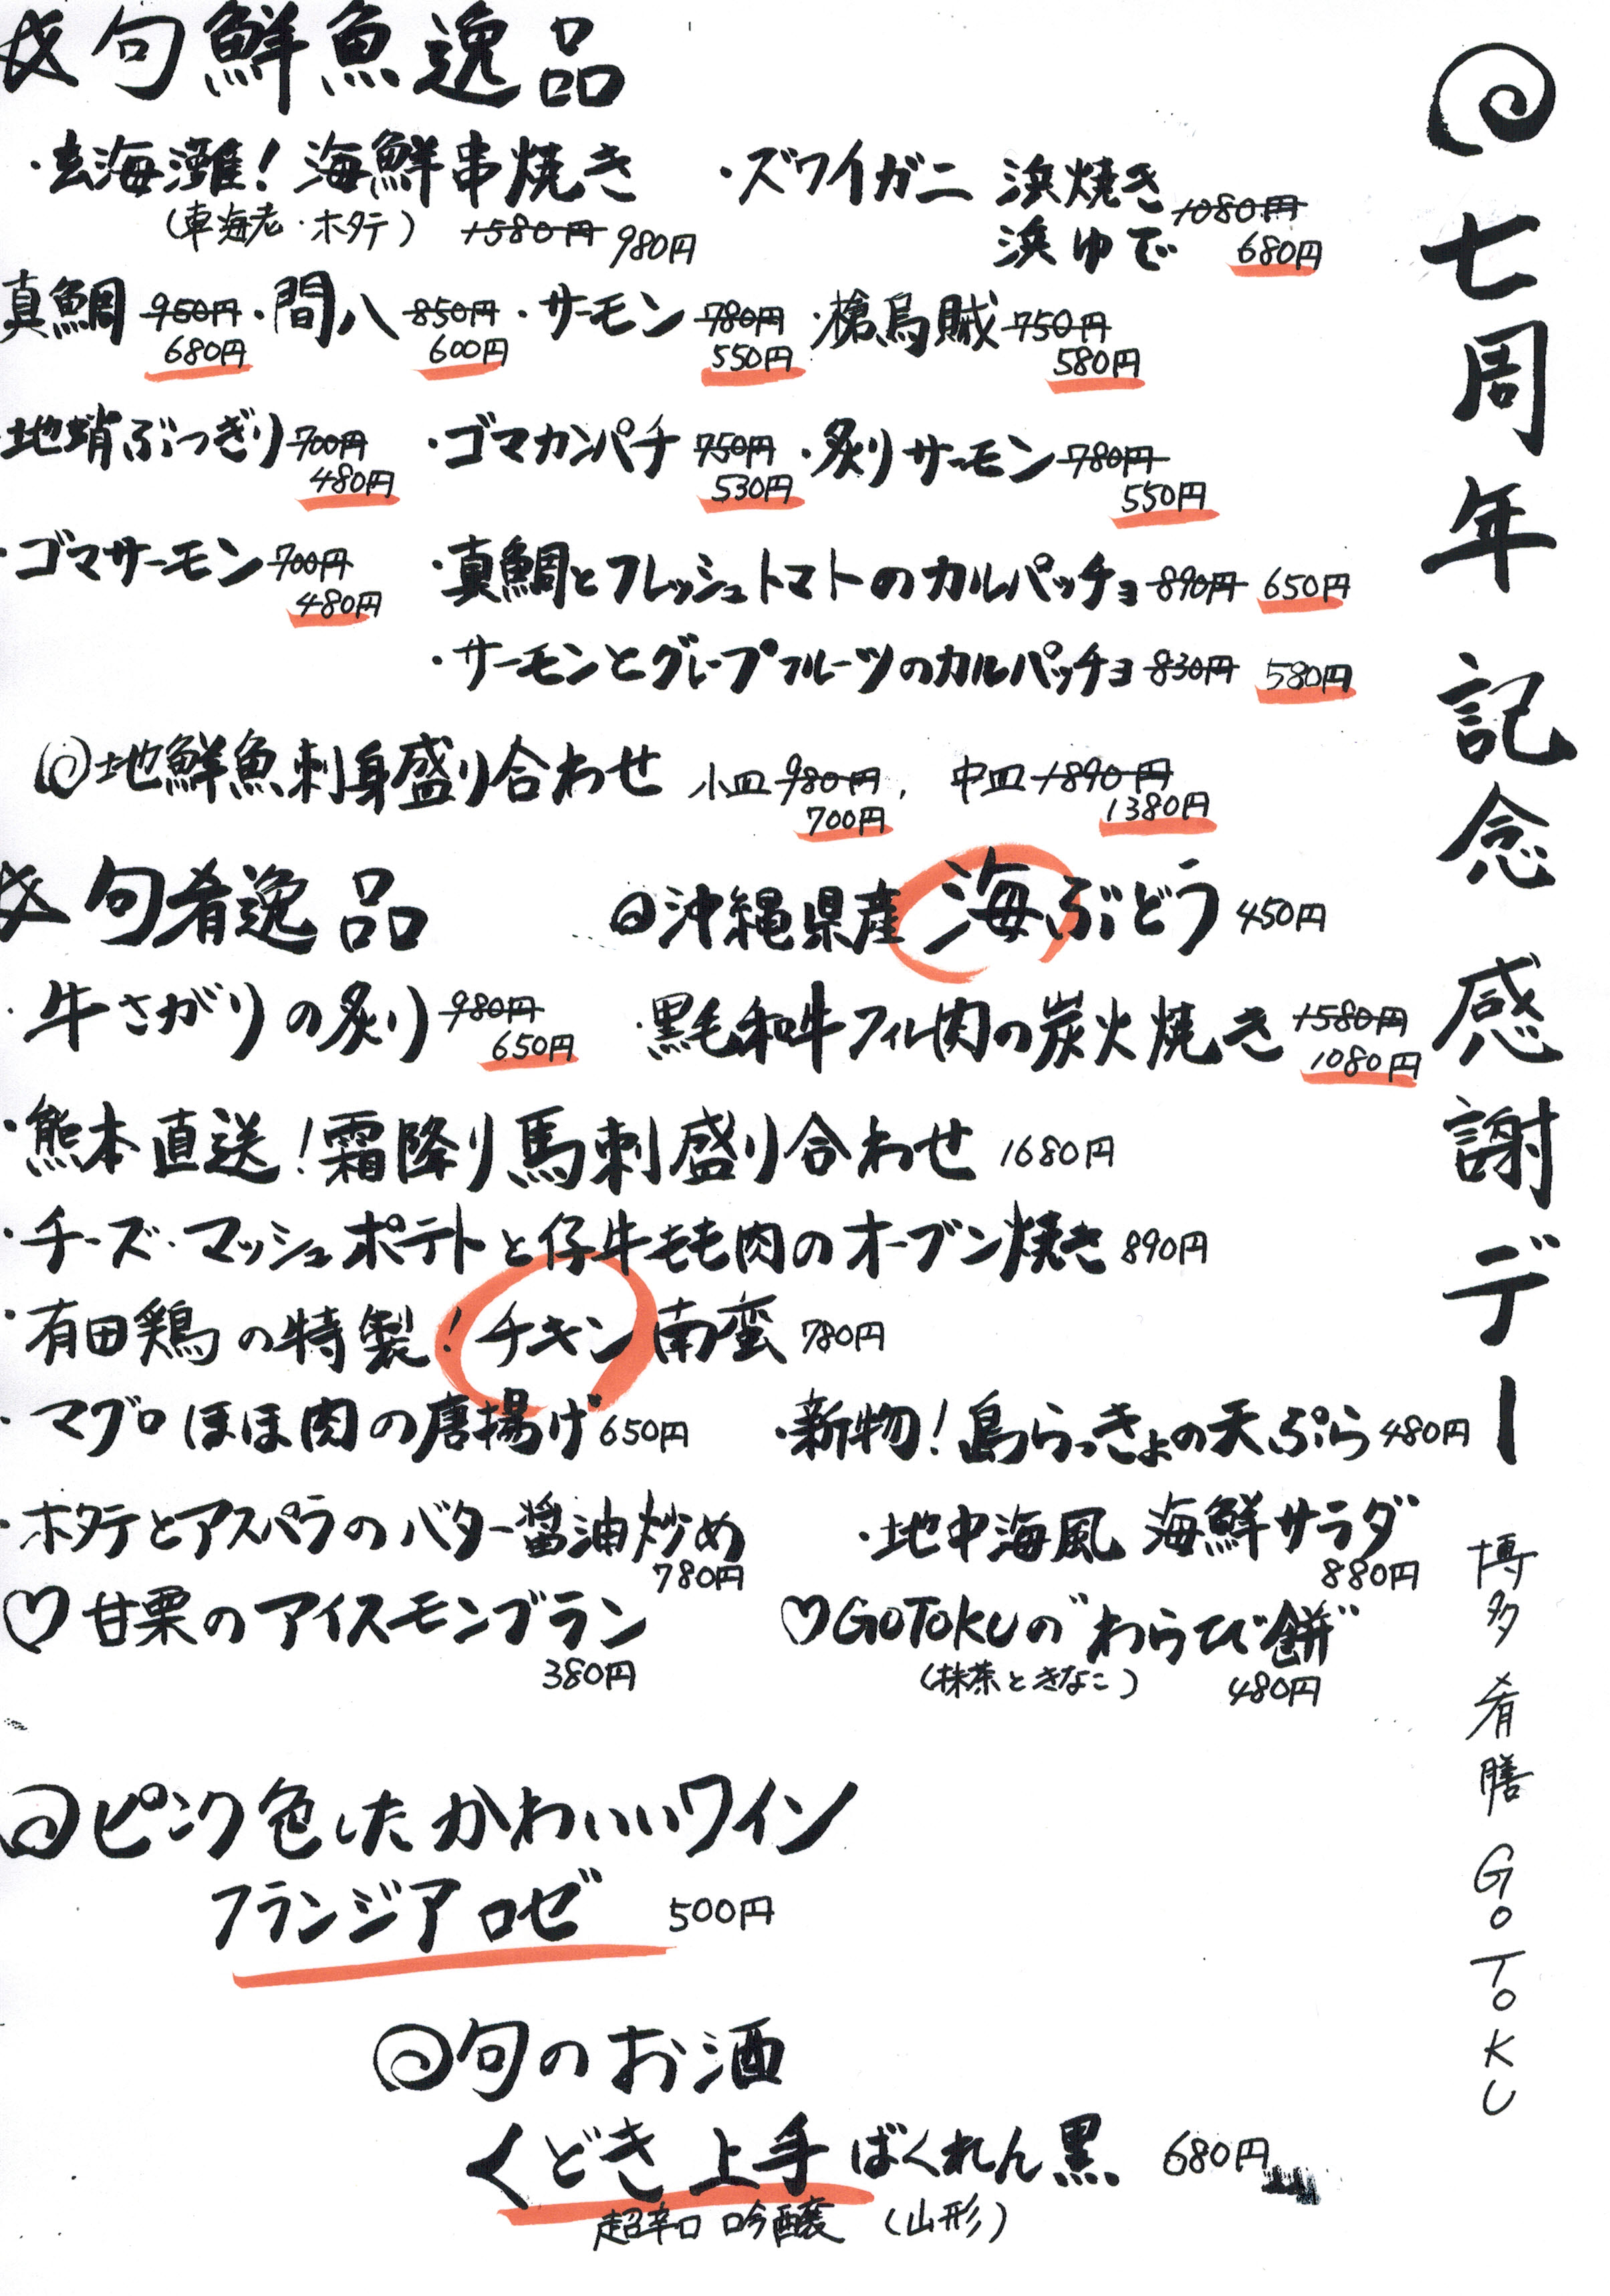 七周年記念 感謝デー
博多 肴膳 GOTOKU
句鮮魚逸品
・玄海灘！海鮮串焼き
(車海老・ホタテ) 1580円 980円
・ズワイガニ 浜焼き
浜ゆで 1080円
680円
真鯛 950円・間八 850円・サーモン 780円・槍烏賊 750円
680円 600円 550円 580円
地蛸ぶつぎり 700円 ・ゴマカンパチ 750円・炙りサーモン 780円
480円 530円 550円
・ゴマサーモン 700円 ・真鯛とフレッシュトマトのカルパッチョ 890円 650円
480円
・サーモンとグレープフルーツのカルパッチョ 830円 580円
地鮮魚刺身盛り合わせ 小皿 980円, 中皿 1890円
700円 1380円
句肴逸品 沖縄県産 海ぶどう 450円
・牛さがりの炙り 980円 ・黒毛和牛フィレ肉の炭火焼き 1580円
650円 1080円
・熊本直送！霜降り馬刺盛り合わせ 1680円
・チーズ・マッシュポテトと仔牛もも肉のオーブン焼き 890円
・有田鶏の特製！チキン南蛮 780円
・マグロほほ肉の唐揚げ 650円 ・新物！島らっきょの天ぷら 480円
・ホタテとアスパラのバター醤油炒め ・地中海風 海鮮サラダ
780円 880円
♡甘栗のアイスモンブラン ♡GOTOKUの"わらび餅"
380円 (抹茶ときなこ) 480円
ピンク色した かわいいワイン
フランジア ロゼ 500円
句のお酒
くどき上手 ばくれん黒 680円
超辛口 吟醸 (山形)